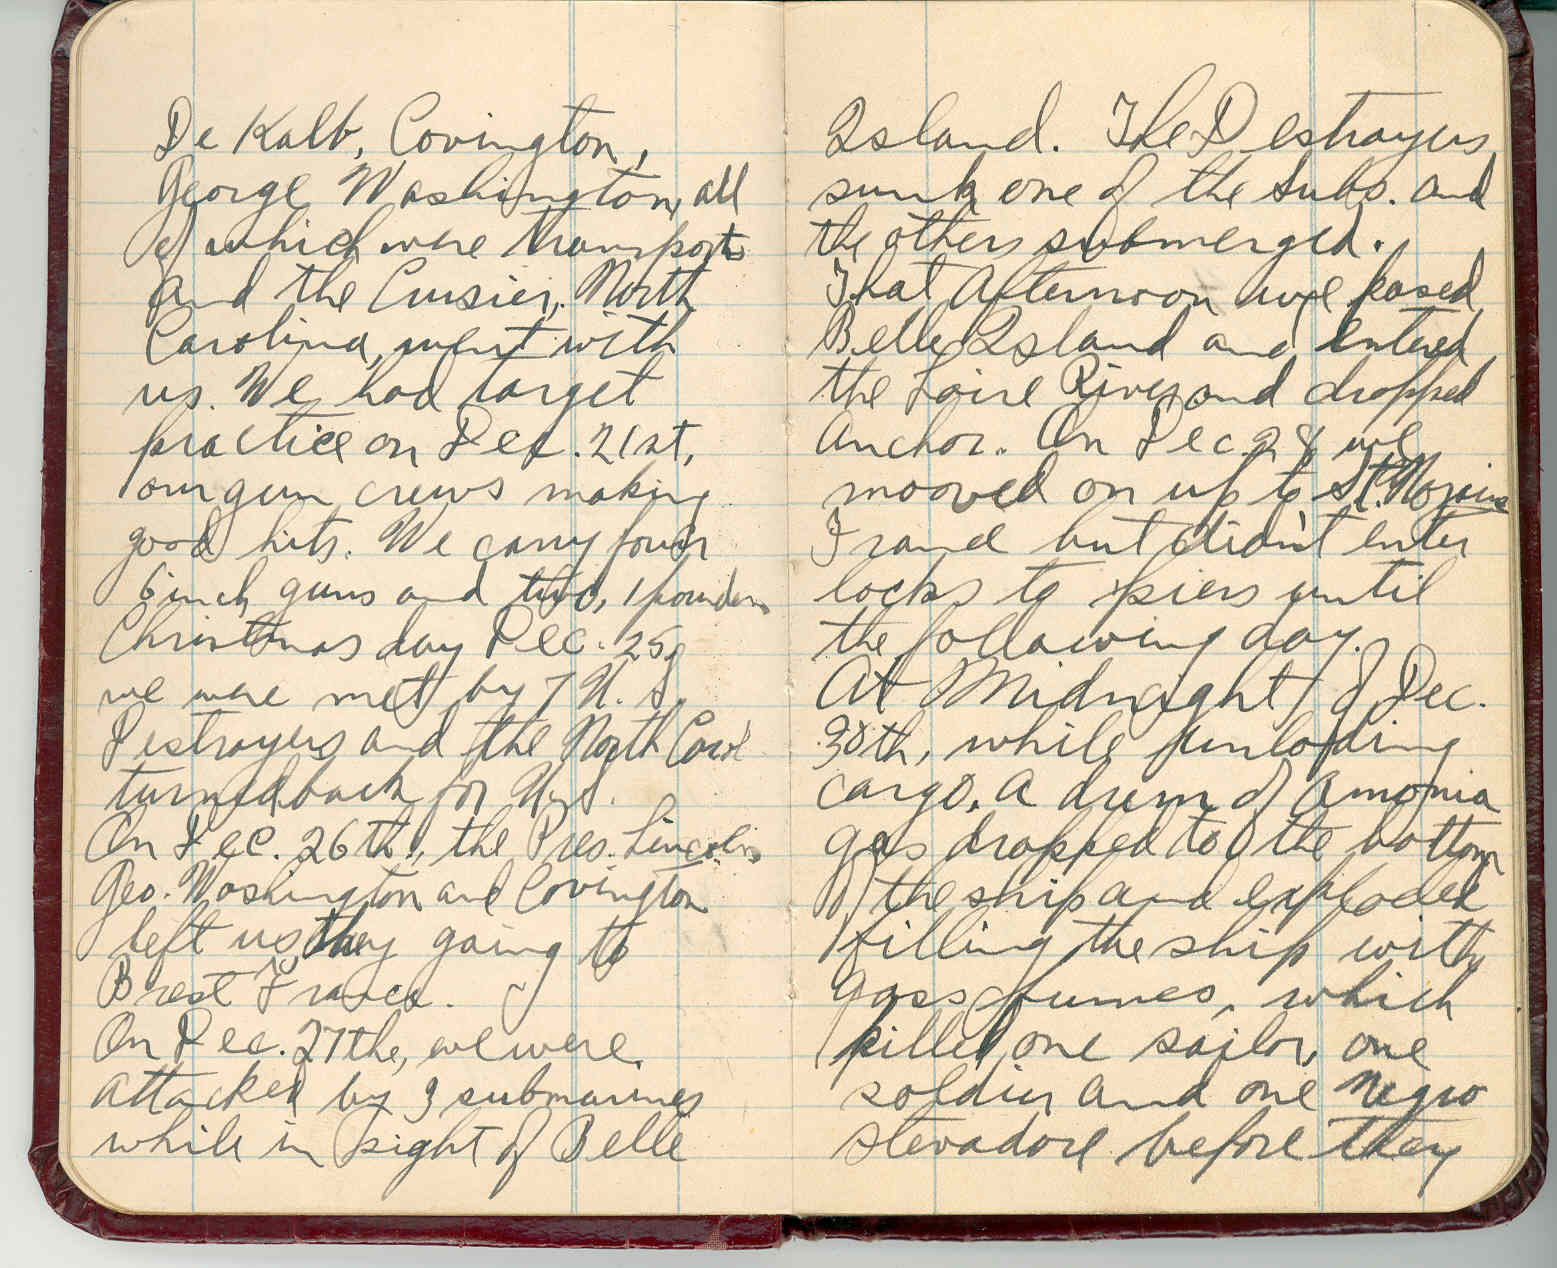 De Kalb, Covington,
George Washington, all
of which were transports
and the Crusier, North
Carolina, went with
us. We had target
practice on Dec. 21st,
our gun crews making
good hits. We carry four
6 inch guns and two, 1 pounders
Christmas day Dec. 25,
we were met by 7 U. S.
Destroyers and the North Car.
turned back for U.S.
On Dec. 26th, the Pres. Lincoln
Geo. Washington and Covington
left us, they going to
Brest France.
On Dec. 27the, we were
attacked by 3 submarines
while in sight of Belle
Island. The Destroyers
sunk one of the subs. and
the others submerged.
That Afternoon we pased
Belle Island and entered
the Loire River and dropped
anchor. On Dec. 28 we
mooved on up to St. Nazaire
France but didn't enter
locks to piers until
the following day.
At Midnight of Dec.
30th, while unloading
cargo, a drum of amonia
gas dropped to the bottom
of the ship and exploded
filling the ship with
gass fumes, which
killed one sailor, one
soldier and one Negro
stevadore before they